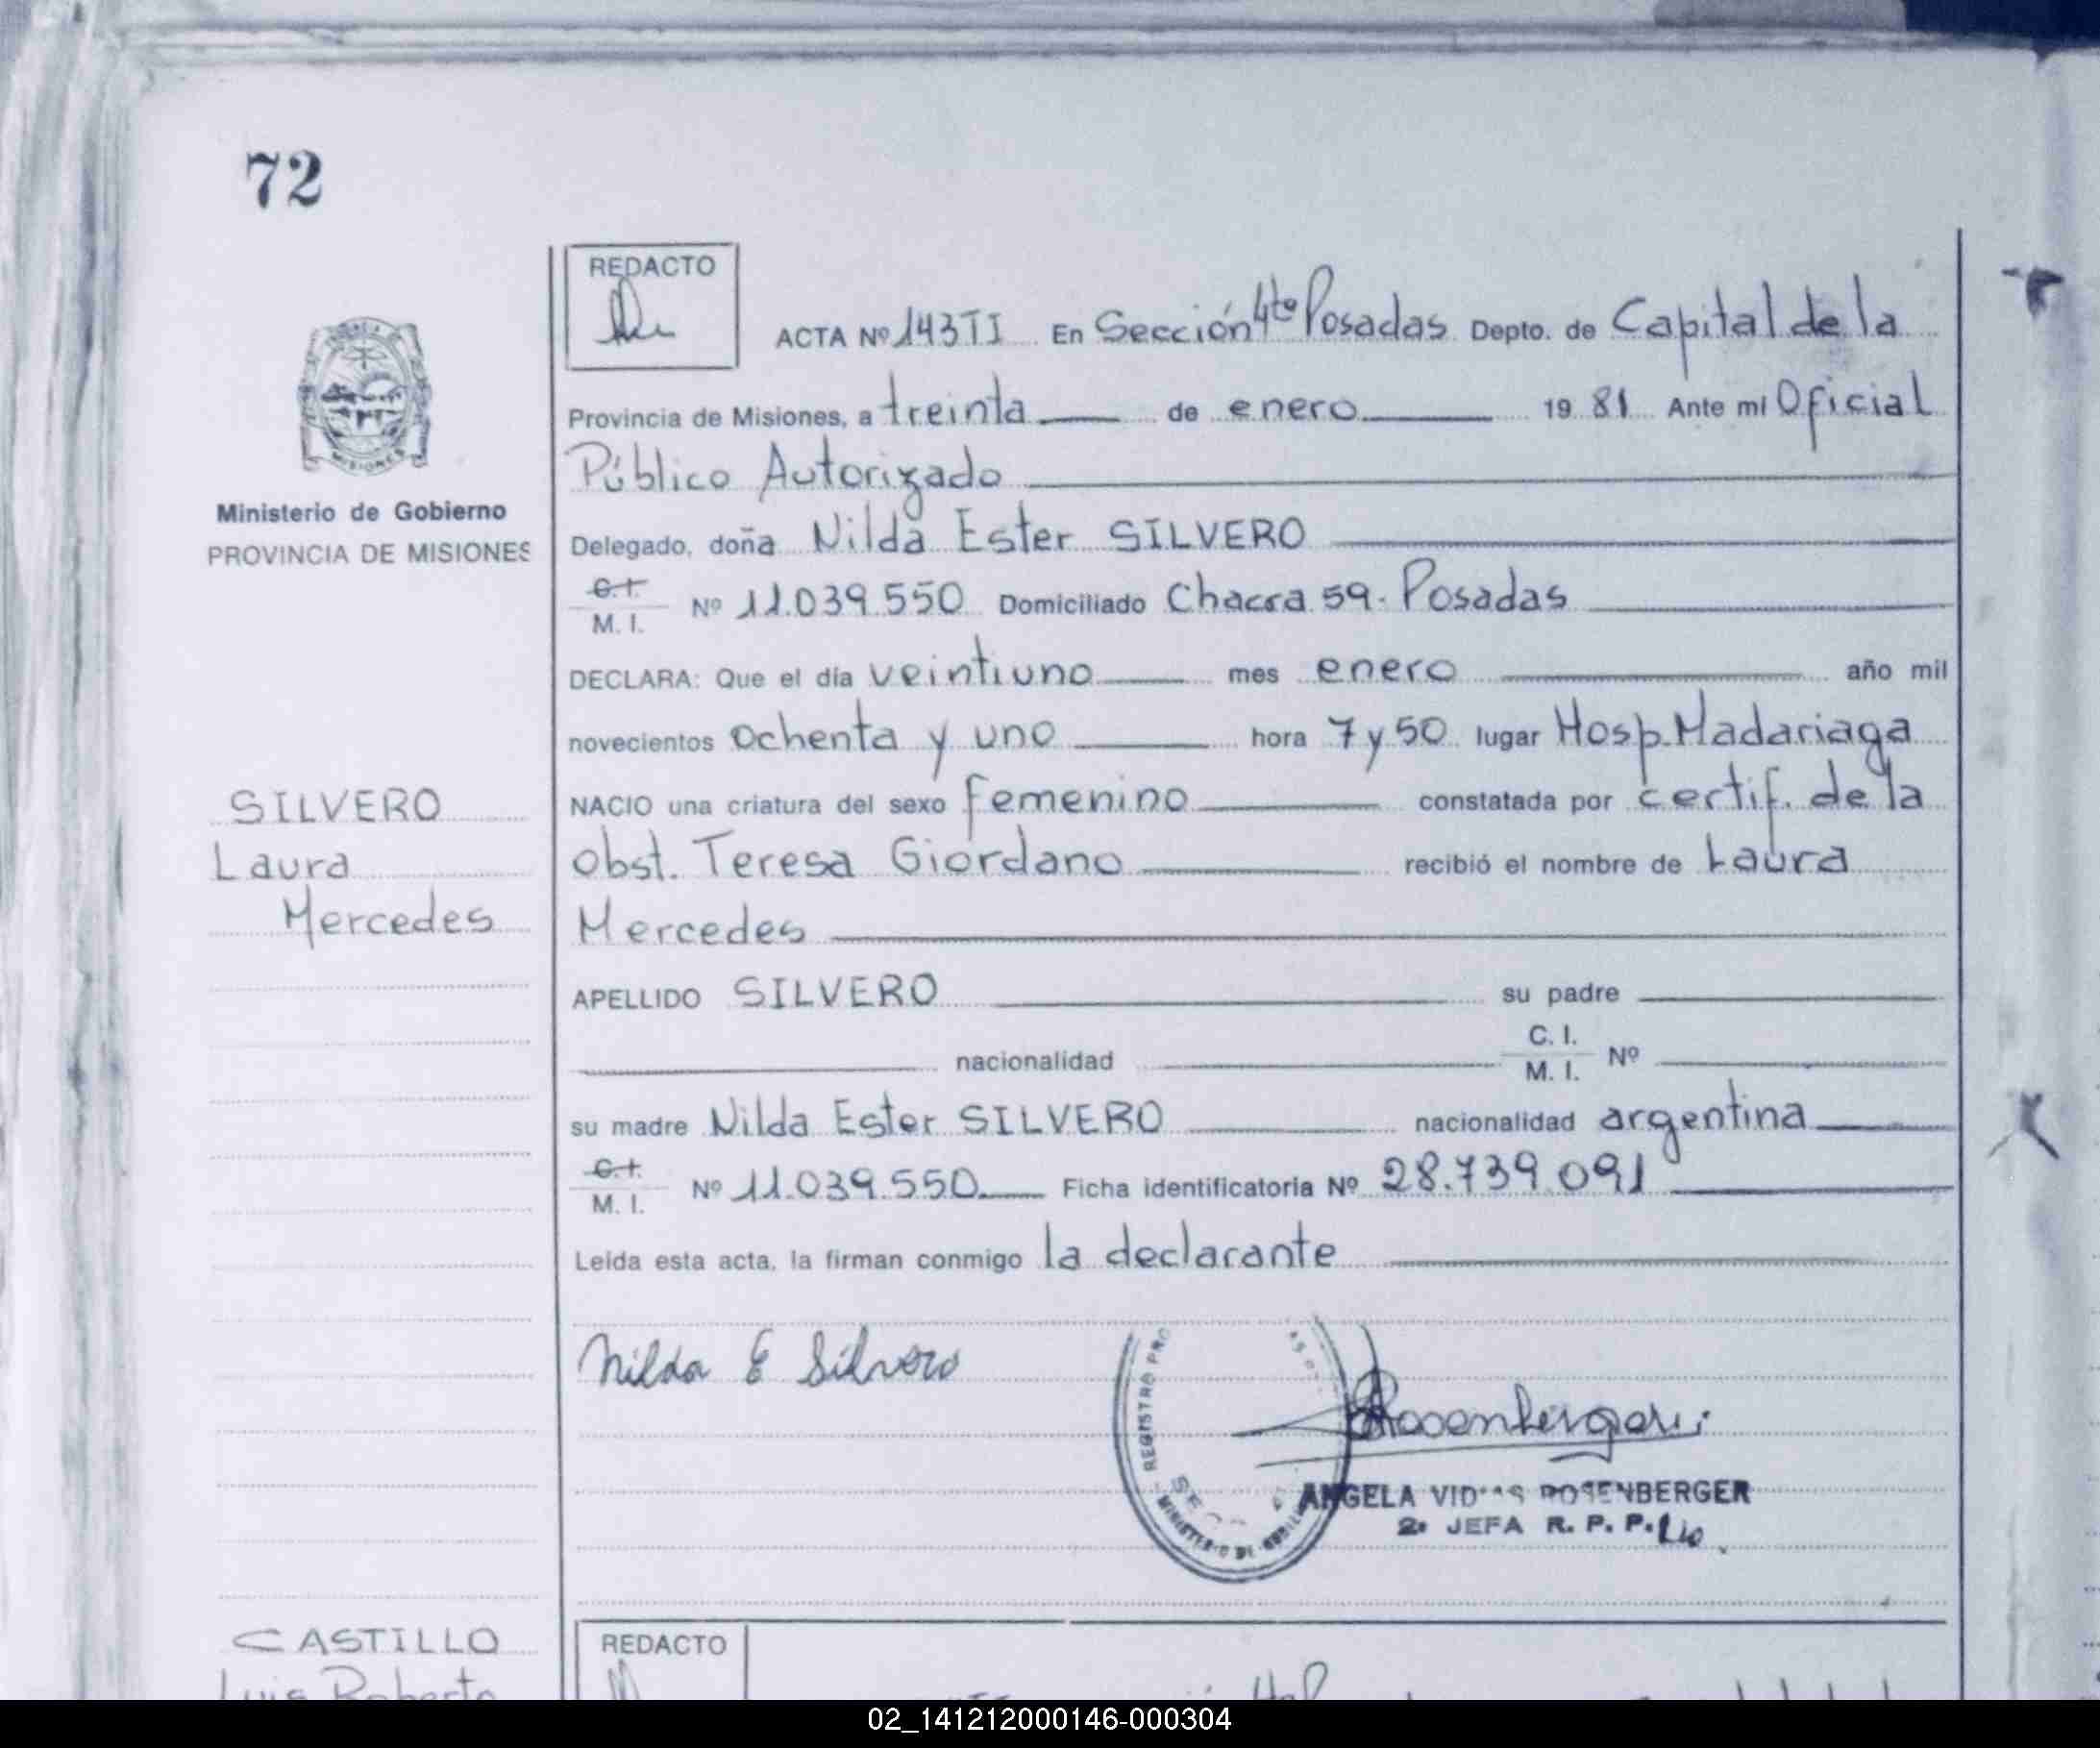 72
REDACTO
ACTA Nº 143 TI En Sección 4ta Posadas Depto. de Capital de la
Provincia de Misiones, a treinta de enero 19 81 Ante mi Oficial
Público Autorizado
Ministerio de Gobierno
PROVINCIA DE MISIONES
Delegado, doña Nilda Ester SILVERO
C.I. M. I. Nº 11.039.550 Domiciliado Chacra 59. Posadas
DECLARA: Que el día veintiuno mes enero año mil
novecientos ochenta y uno hora 7 y 50 lugar Hosp. Madariaga
SILVERO
Laura
Mercedes
NACIO una criatura del sexo femenino constatada por certif. de la
Obst. Teresa Giordano recibió el nombre de Laura
Mercedes
APELLIDO SILVERO su padre
nacionalidad C. I. M. I. Nº
su madre Nilda Ester SILVERO nacionalidad argentina
C.I. M. I. Nº 11.039.550 Ficha identificatoria Nº 28.739.091
Leída esta acta, la firman conmigo la declarante
Nilda E Silvero
REGISTRO PRO
MINISTERIO DE
Rosenberger
ANGELA ROSENBERGER
2º JEFA R. P. P.
CASTILLO
Luis Roberto
REDACTO
02_141212000146-000304